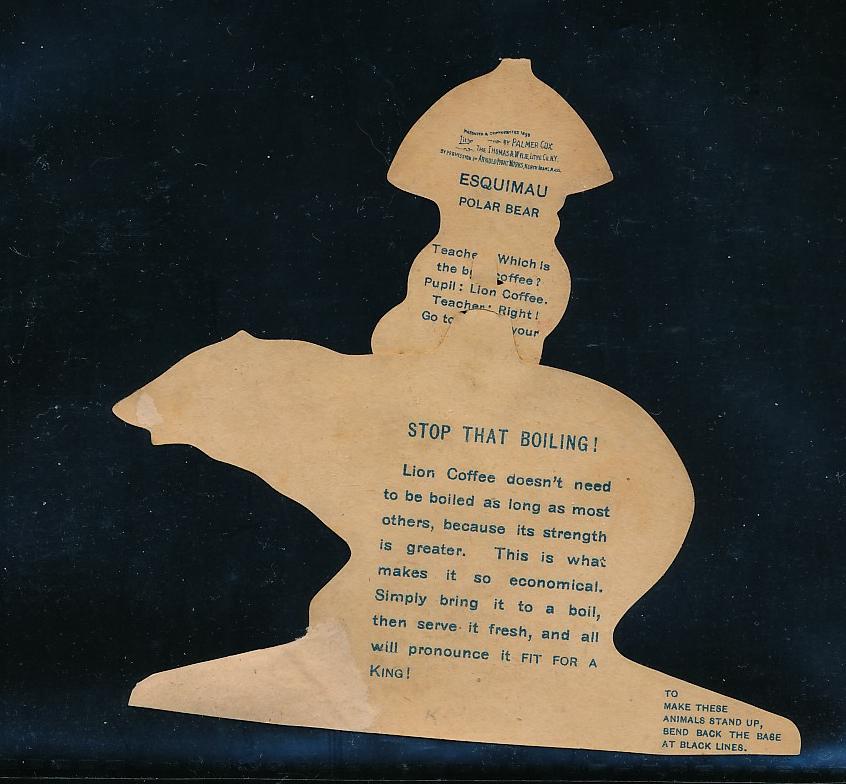 PATENTED & COPYRIGHTED
BY PALMER COX
THE THOMAS A. WYLIE, LITHO. CO. N.Y.
BY PERMISSION OF ARNOLD PRINT WORKS, NORTH ADAMS, MASS.
ESQUIMAU
POLAR BEAR
Teache Which is
the b coffee?
Pupil: Lion Coffee.
Teacher: Right!
Go to your
STOP THAT BOILING!
Lion Coffee doesn't need
to be boiled as long as most
others, because its strength
is greater. This is what
makes it so economical.
Simply bring it to a boil,
then serve it fresh, and all
will pronounce it FIT FOR A
KING!
TO
MAKE THESE
ANIMALS STAND UP,
BEND BACK THE BASE
AT BLACK LINES.